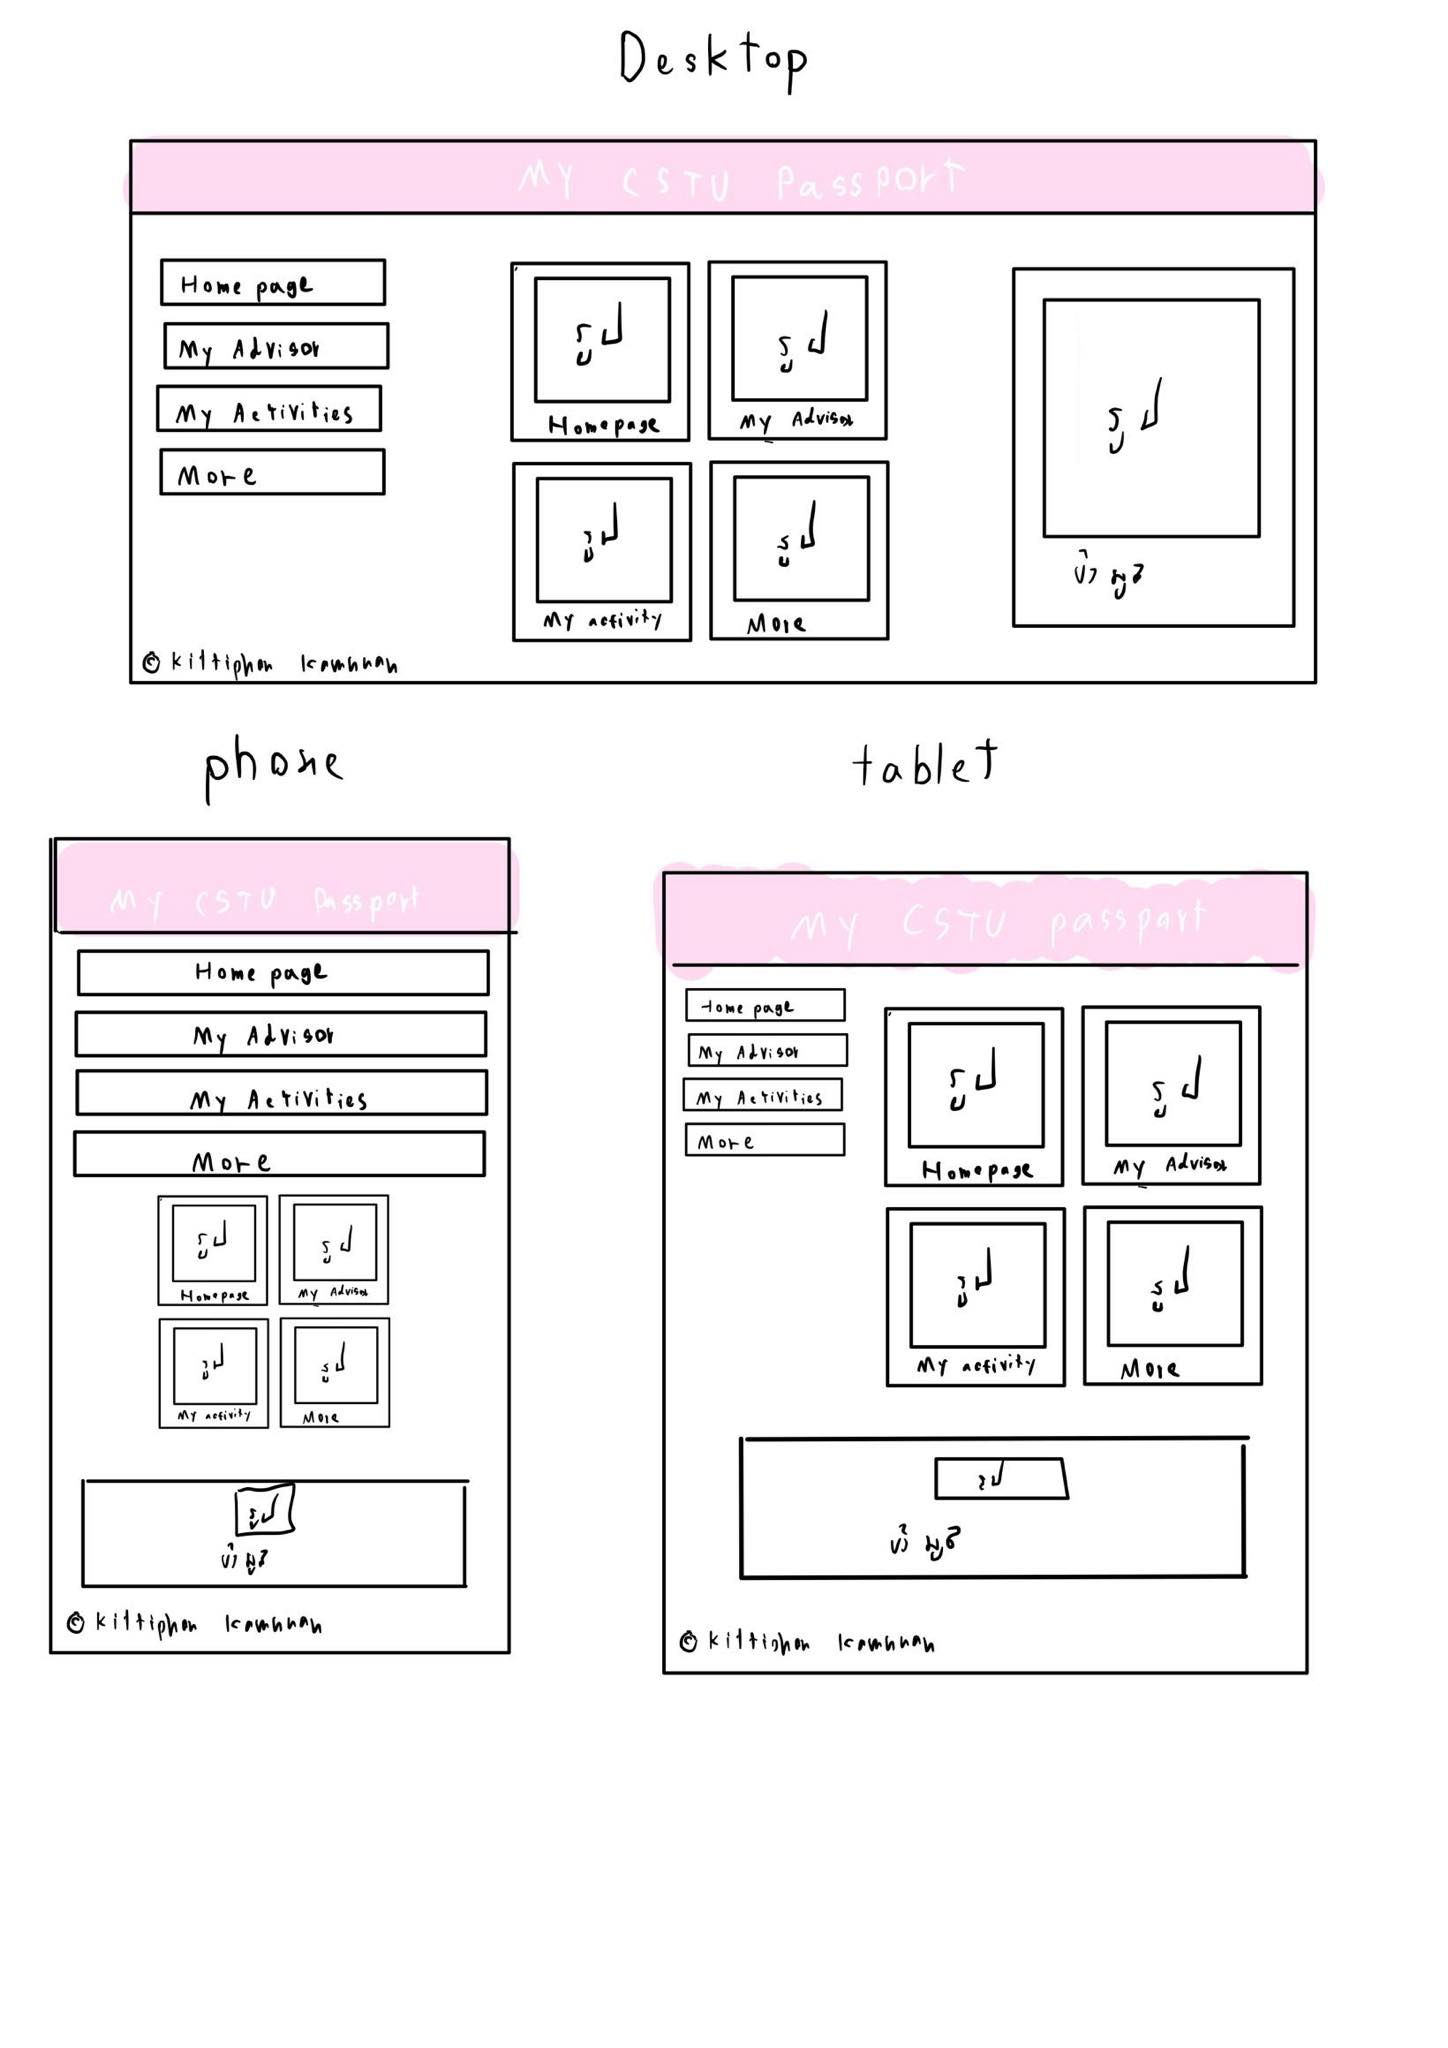 Desktop
My CSTU Passport
Home page
My Advisor
My Activities
More
รูป
Homepage
รูป
My Advisor
รูป
My activity
รูป
More
รูป
© Kittiphan
phone
My CSTU Passport
Home page
My Advisor
My Activities
More
รูป
Homepage
รูป
My Advisor
รูป
My activity
รูป
More
รูป
© Kittiphan
tablet
My CSTU passport
Home page
My Advisor
My Activities
More
รูป
Homepage
รูป
My Advisor
รูป
My activity
รูป
More
รูป
© Kittiphan